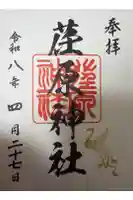 奉拝
荏原神社
令和八年四月二十七日